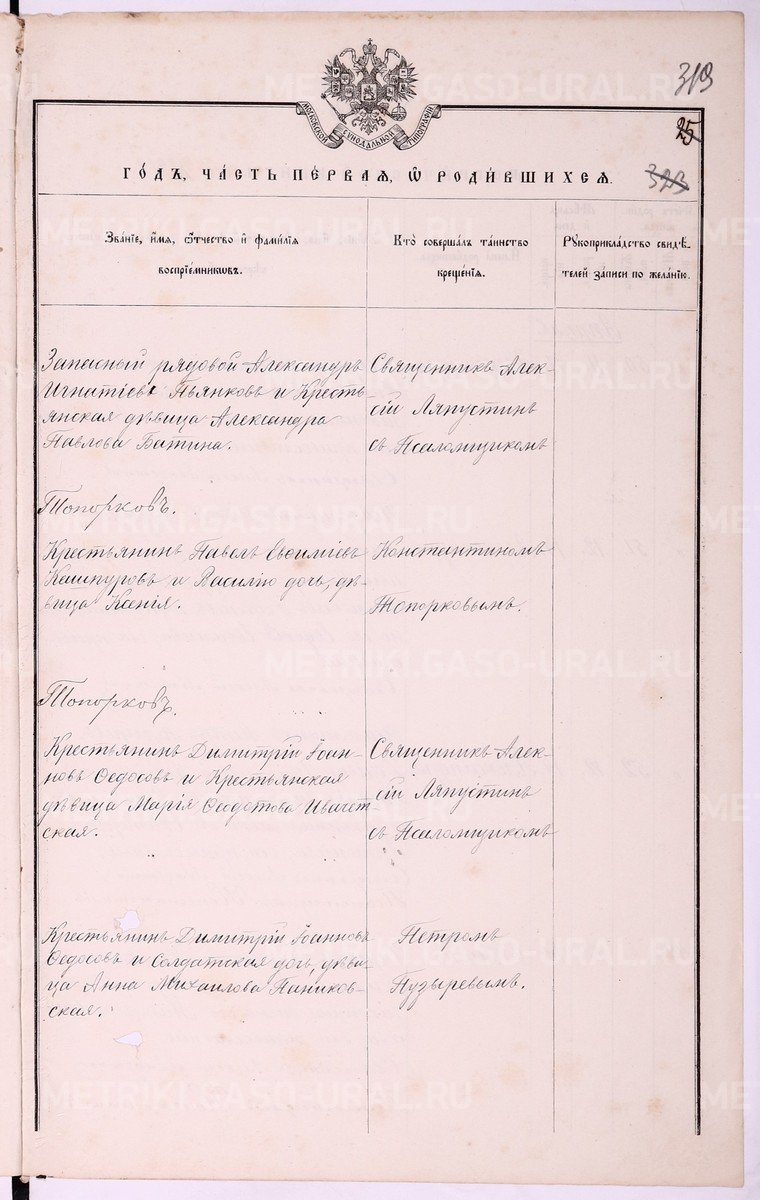 319
МОСКОВСКОЙ СѴНОДАЛЬНОЙ ТИПОГРАФІИ
25
323
ГО́ДЪ, ЧА́СТЬ ПЕ́РВАЯ, Ѿ РОДИ́ВШИХСЯ.
Зва́нїе, и́мя, ѻ́тчество и҆ фамѝлїя
воспрїе́мниковъ.
Кто̀ соверша́лъ та́инство
креще́нїя.
Рꙋкоприкла́дство свидѣ́-
телей за́писи по жела́нїю.
Запасный рядовой Александръ
Игнатіевъ Пьянковъ и Кресть-
янская дѣвица Александра
Павлова Батина.
Священникъ Алек-
сій Ляпустинъ
съ Псаломщикомъ
Топорковъ.
Крестьянинъ Павелъ Евѳиміевъ
Кашпуровъ и Василію дочь, дѣ-
вица Ксенія.
Константиномъ
Топорковымъ.
Топорковъ.
Крестьянинъ Димитрій Іоан-
новъ Ѳедосовъ и Крестьянская
дѣвица Марія Ѳеодотова Ивачет-
ская.
Священникъ Алек-
сій Ляпустинъ
съ Псаломщикомъ
Крестьянинъ Димитрій Іоанновъ
Ѳедосовъ и Солдатская дочь, дѣви-
ца Анна Михаилова Паников-
ская.
Петромъ
Пузыревымъ.
METRIKI.GASO-URAL.RU